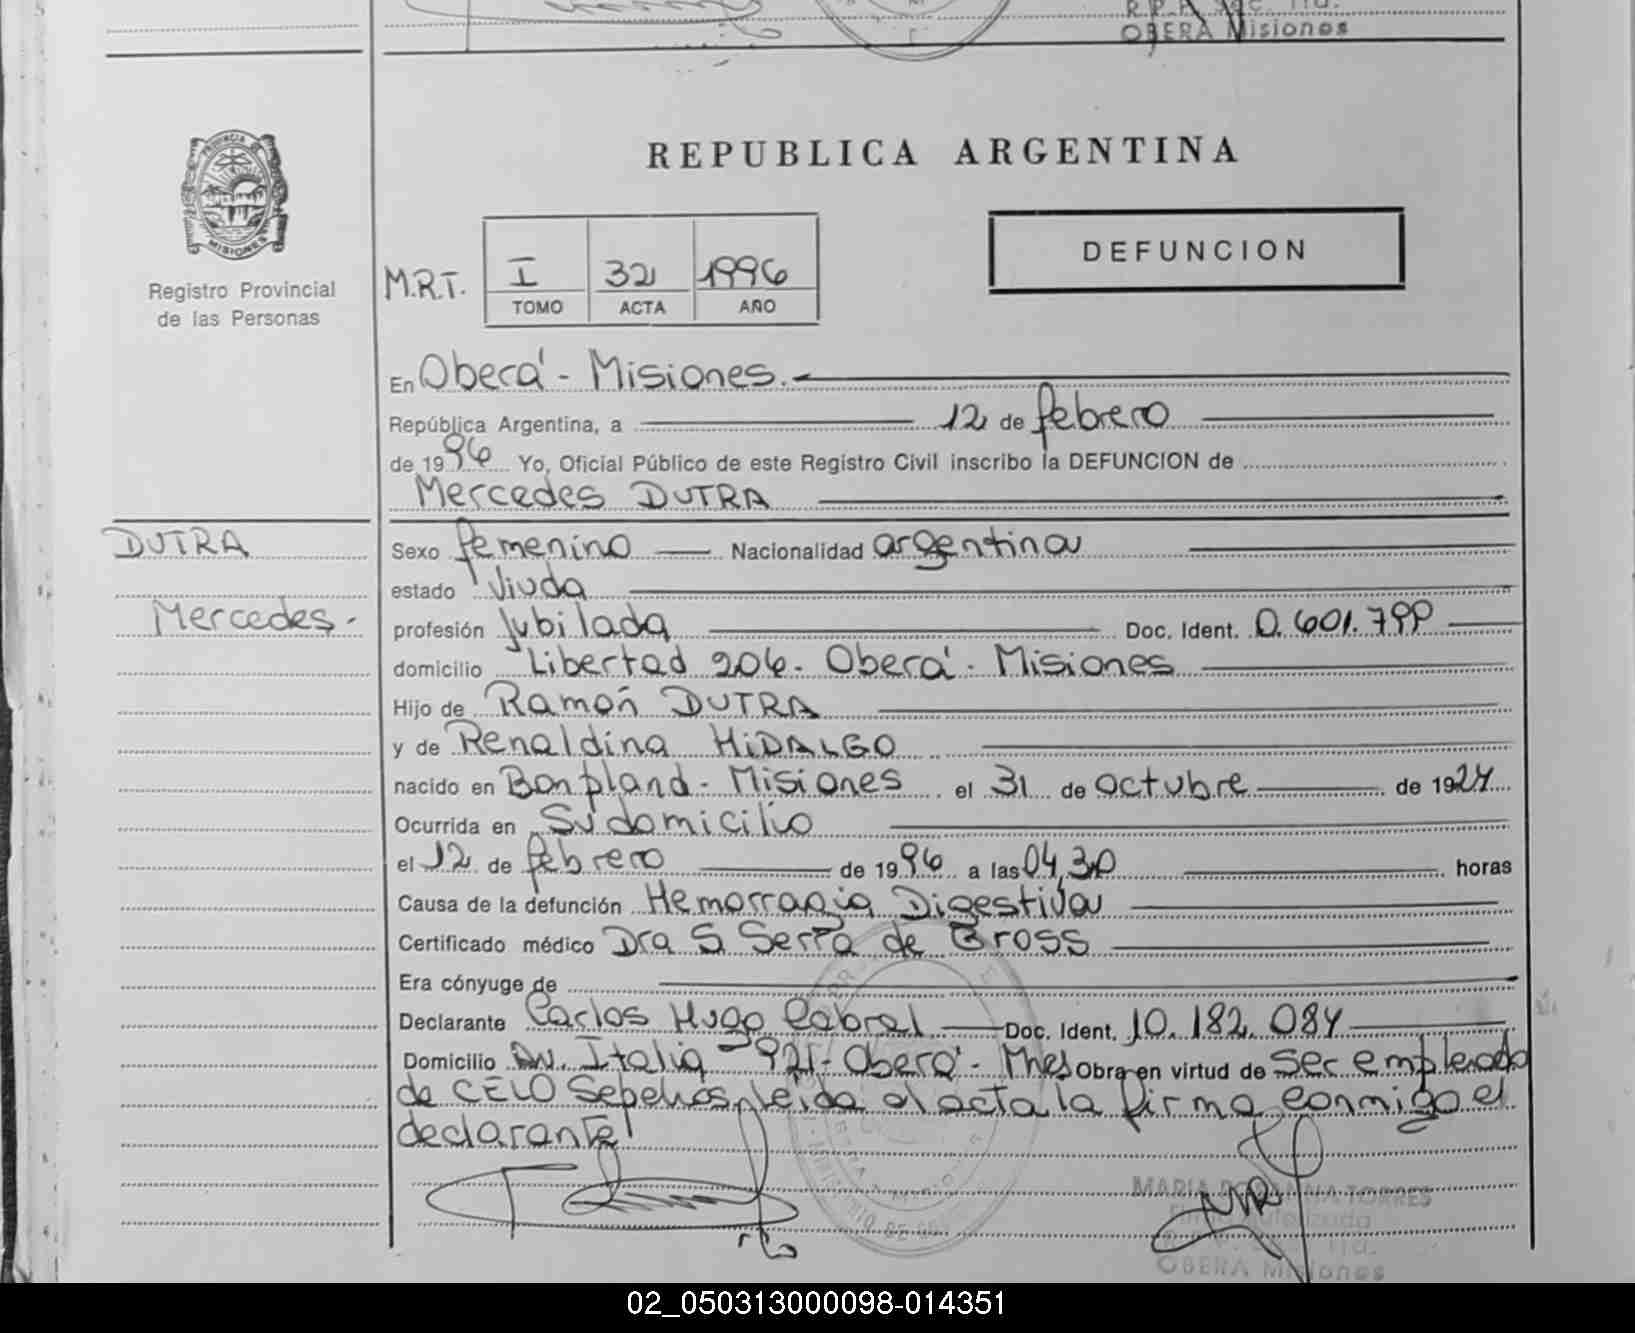 OBERA Misiones
PROVINCIA DE
MISIONES
Registro Provincial
de las Personas
REPUBLICA ARGENTINA
DEFUNCION
M.R.T. I 32 1996
TOMO ACTA AÑO
En Oberá - Misiones.
República Argentina, a 12 de febrero
de 1996 Yo, Oficial Público de este Registro Civil inscribo la DEFUNCION de
Mercedes DUTRA
DUTRA
Mercedes.
Sexo femenino Nacionalidad argentina
estado Viuda
profesión Jubilada Doc. Ident. 0.601.799
domicilio Libertad 206. Oberá - Misiones
Hijo de Ramón DUTRA
y de Renaldina HiDALGO
nacido en Bonpland - Misiones el 31 de octubre de 1924
Ocurrida en Su domicilio
el 12 de febrero de 1996 a las 04,30 horas
Causa de la defunción Hemorragia Digestiva
Certificado médico Dra S. Serra de Gross
Era cónyuge de
Declarante Carlos Hugo Cabral Doc. Ident. 10.182.084
Domicilio Av. Italia 921 - Oberá - Mnes Obra en virtud de ser empleado
de CELO Sepelios, leída el acta la firma conmigo el
declarante
TORRES
OBERA Misiones
02_050313000098-014351